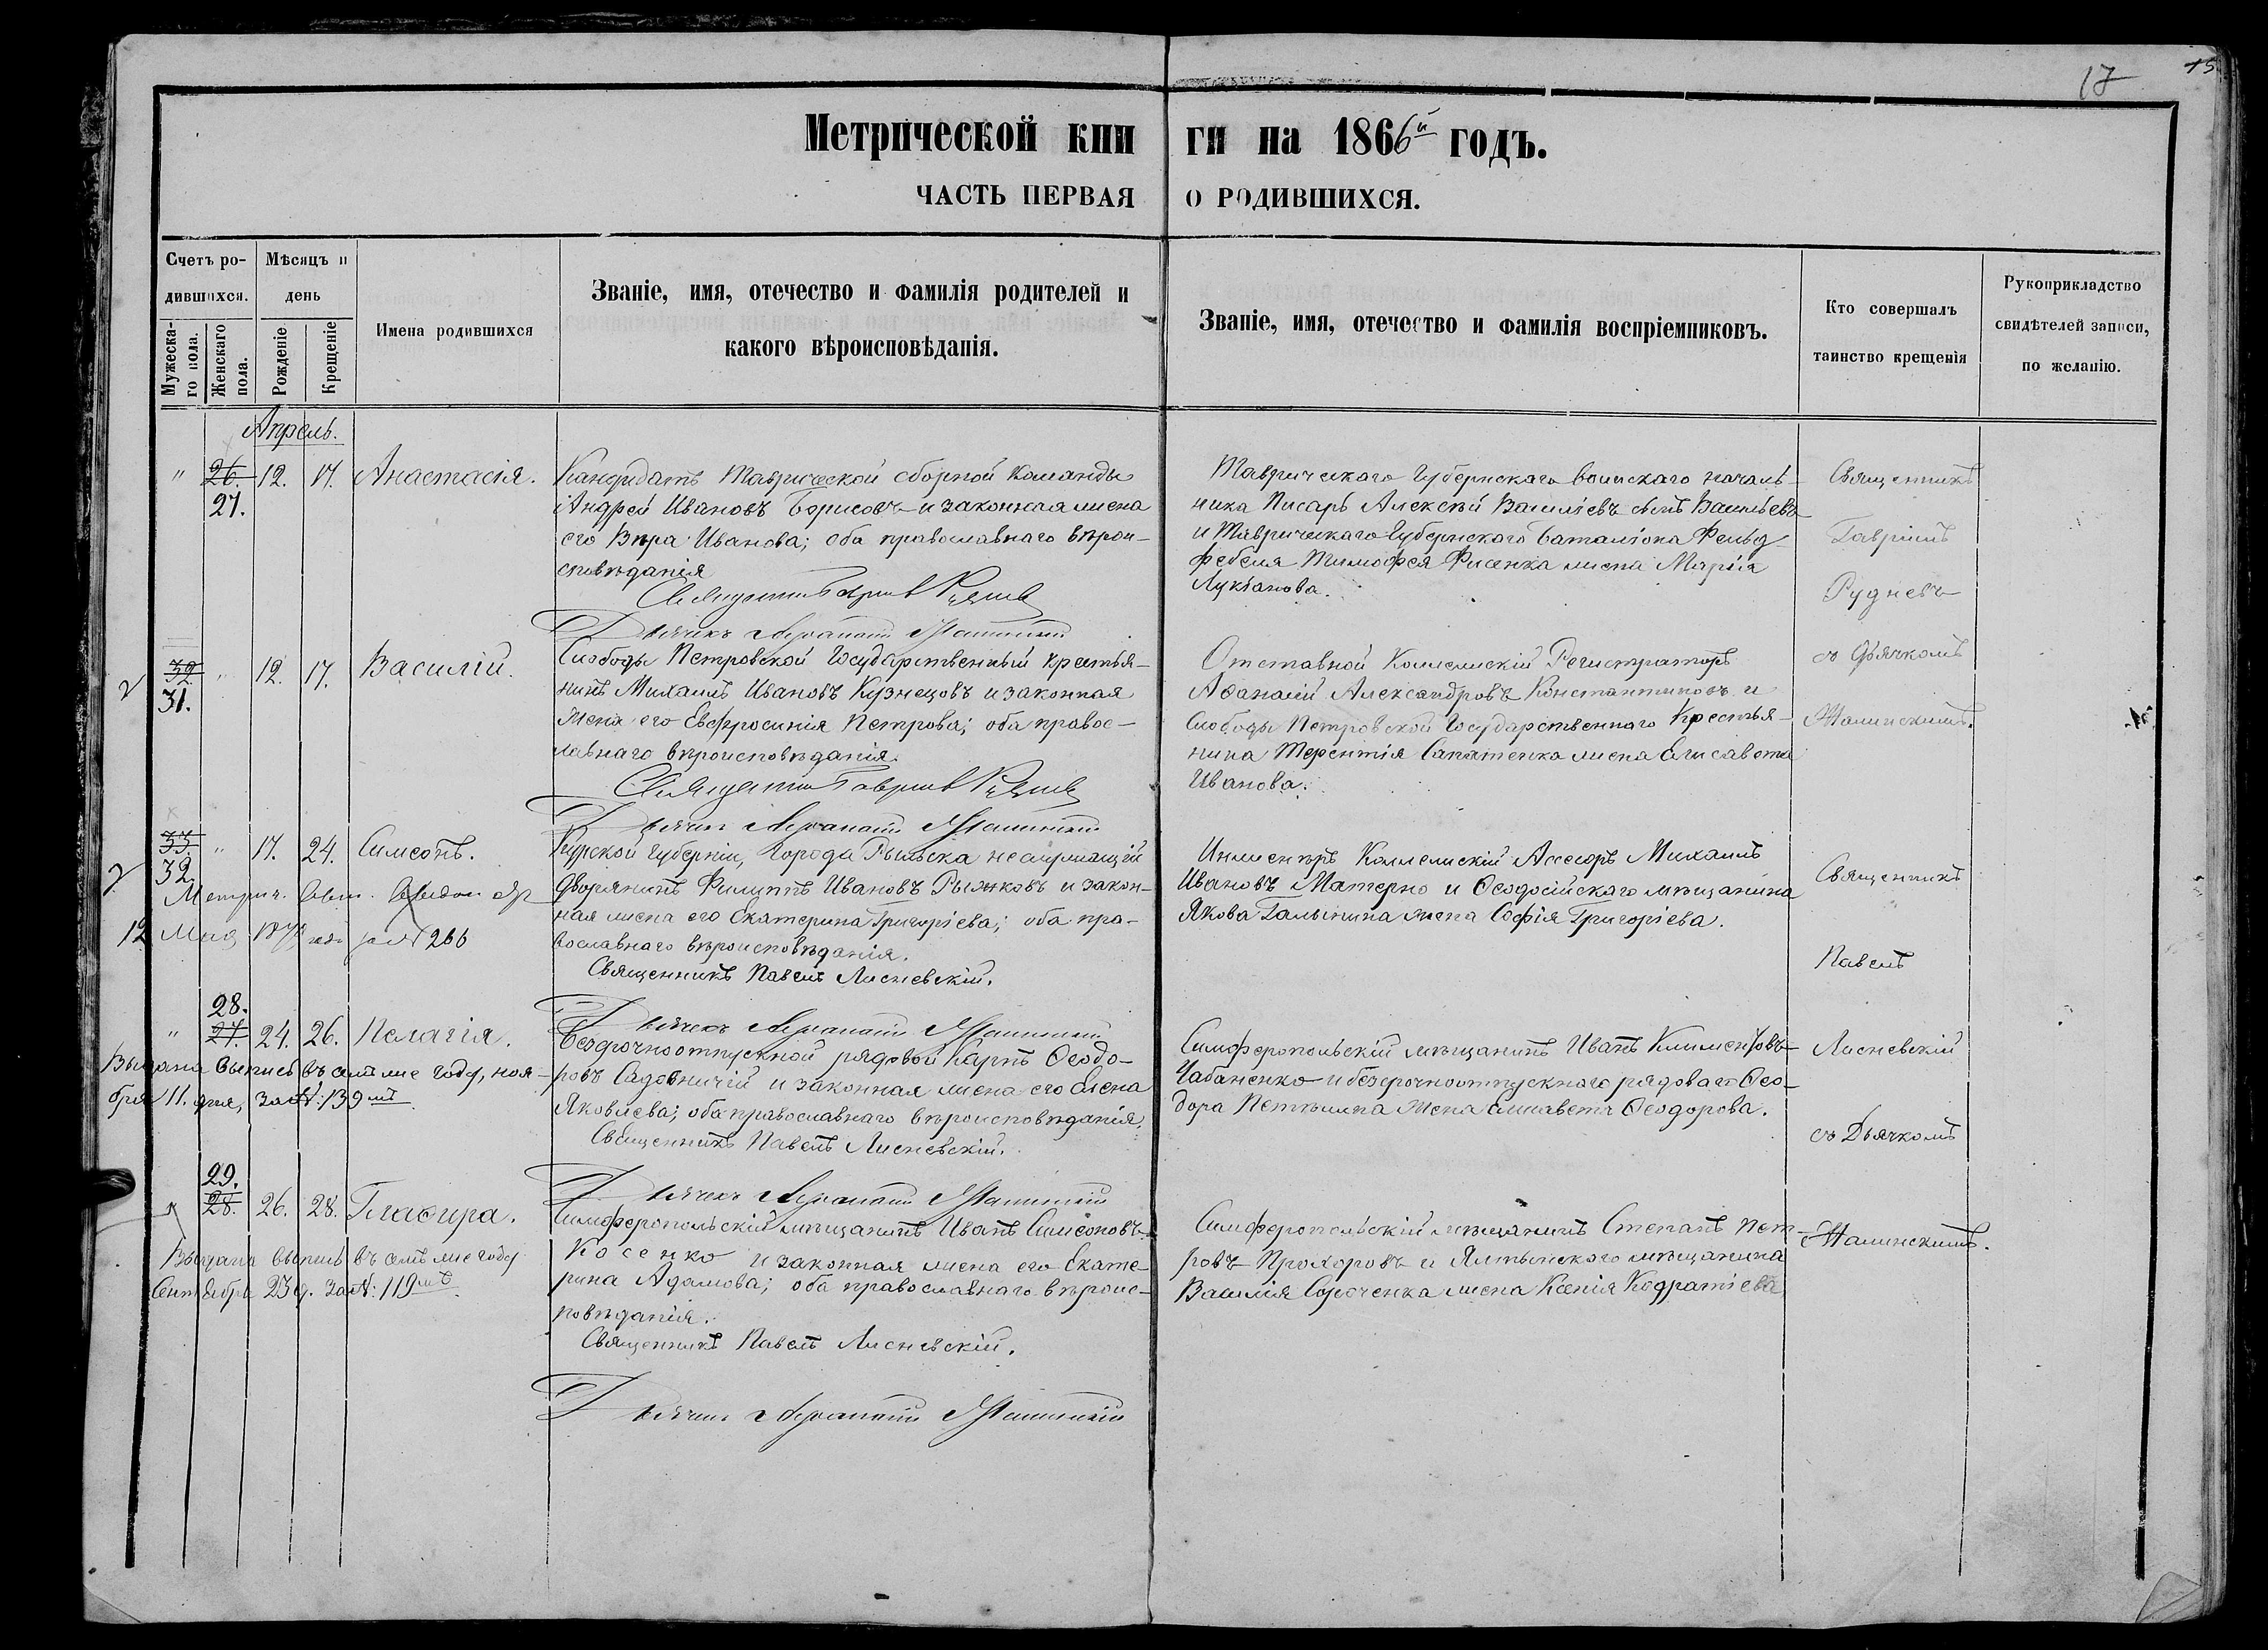 17
15.
Метрической кни ги на 1866й годъ.
ЧАСТЬ ПЕРВАЯ О РОДИВШИХСЯ.
Счетъ ро-
дившихся.
Мужеска-
го пола.
Женскаго
пола.
Мѣсяцъ и
день
Рожденіе
Крещеніе
Имена родившихся
Званіе, имя, отечество и фамилія родителей и
какого вѣроисповѣданія.
Званіе, имя, отечество и фамилія воспріемниковъ.
Кто совершалъ
таинство крещенія
Рукоприкладство
свидѣтелей записи,
по желанію.
Апрель.
" 26. 12. 17. Анастасія.
27.
Кандидатъ Таврической сборной команды
Андрей Ивановъ Борисовъ и законная жена
его Вѣра Иванова; оба православнаго вѣрои-
сповѣданія
Священникъ Гавріилъ Рудневъ
Дьячекъ Малинскій
Таврическаго Губернскаго воинскаго началь-
ника Писарь Алексѣй Васильевъ сынъ Васильевъ
и Таврическаго Губернскаго баталіона Фельд-
фебеля Тимофея Фисенка жена Марія
Лукіанова.
Священникъ
Гавріилъ
Рудневъ
съ Дьячкомъ
Малинскимъ.
32. " 12. 17. Василій.
31.
Слободы Петровской Государственный крестья-
нинъ Михаилъ Ивановъ Кузнецовъ и законная
жена его Евфросинія Петрова; оба правос-
лавнаго вѣроисповѣданія.
Священникъ Гавріилъ Рудневъ
Дьячекъ Малинскій
Отставной Коллежскій Регистраторъ
Аѳанасій Александровъ Константиновъ и
Слободы Петровской Государственнаго Крестья-
нина Терентія Сапатенка жена Елисавета
Иванова.
33. " 17. 24. Симеонъ.
32.
Метрич. Свид.
12 Мая за № 266
Курской Губерніи, Города Рыльска неслужащій
дворянинъ Филиппъ Ивановъ Рыжковъ и закон-
ная жена его Екатерина Григоріева; оба пра-
вославнаго вѣроисповѣданія.
Священникъ Павелъ Лисневскій.
Дьячекъ Малинскій
Инженеръ Коллежскій Ассесоръ Михаилъ
Ивановъ Матерно и Ѳеодосійскаго мѣщанина
Якова Галынина жена Софія Григоріева.
Священникъ
Павелъ
Лисневскій
съ Дьячкомъ
Малинскимъ.
28.
" 27. 24. 26. Пелагія.
Выдана выпись въ семъ же году, ноя-
бря 11. дня, за №: 139мъ
Безсрочноотпускной рядовой Карпъ Ѳеодо-
ровъ Садовничій и законная жена его Елена
Яковлева; оба православнаго вѣроисповѣданія.
Священникъ Павелъ Лисневскій.
Дьячекъ Малинскій
Симферопольскій мѣщанинъ Иванъ Климентовъ
Чабаненко и безсрочноотпускнаго рядоваго Ѳео-
дора жена Елисавета Ѳеодорова.
29.
" 28. 26. 28. Глафира.
Выдана выпись въ семъ же году
Сентября 23 д. за №: 119мъ
Симферопольскій мѣщанинъ Иванъ Симеоновъ
Косенко и законная жена его Екате-
рина Адамова; оба православнаго вѣроис-
повѣданія.
Священникъ Павелъ Лисневскій.
Дьячекъ Малинскій
Симферопольскій мѣщанинъ Степанъ Пет-
ровъ Прохоровъ и Ялтынскаго мѣщанина
Василія жена Ксенія Кодратіева